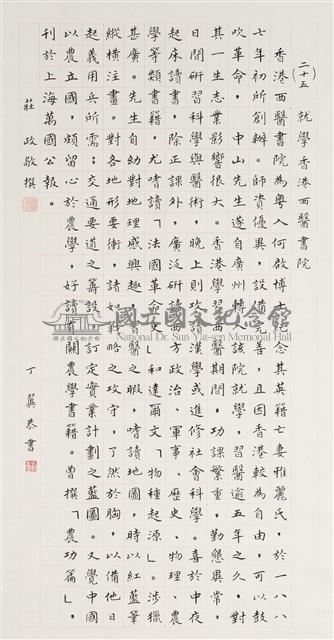 （二十五） 就學香港西醫書院
香港西醫書院為粵人何啟博士紀念其英籍亡妻雅麗氏，於一八八
七年初所創辦。師資優異，設備完善，且因香港較為自由，可以鼓
吹革命，中山先生遂自廣州轉入該院就學，習醫逾五年之久，對
其一生志業影響很大。香港學習西醫期間，功課繁重，勤懇異常，
日間研習科學與醫術，晚上則攻讀漢學或進修社會科學。喜於中夜
起床讀書，除正課外，廣泛研讀西方政治、軍事、歷史、物理、農
學等類書籍，尤嗜讀「法國革命史」和達爾文「物種起源」。涉獵
甚廣。先生自幼對地理感興趣，習醫之暇，嗜讀地圖，時以紅藍筆
縱橫注畫。對各地形要衝，諸如戰略之攻守，了然於胸，以備他日
起義用兵所需；交通要道之籌設，訂定實業計劃之藍圖。又覺中國
以農立國，頗留心於農學，好讀有關農學書籍。曾撰「農功篇」，
刊於上海萬國公報。
莊 政敬撰
丁 恭書
國立國父紀念館
National Dr. Sun Yat-sen Memorial Hall